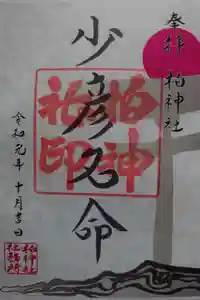 奉拝 柏神社
少彦名命
令和元年 十月吉日
柏神
社印
柏神社
社務所